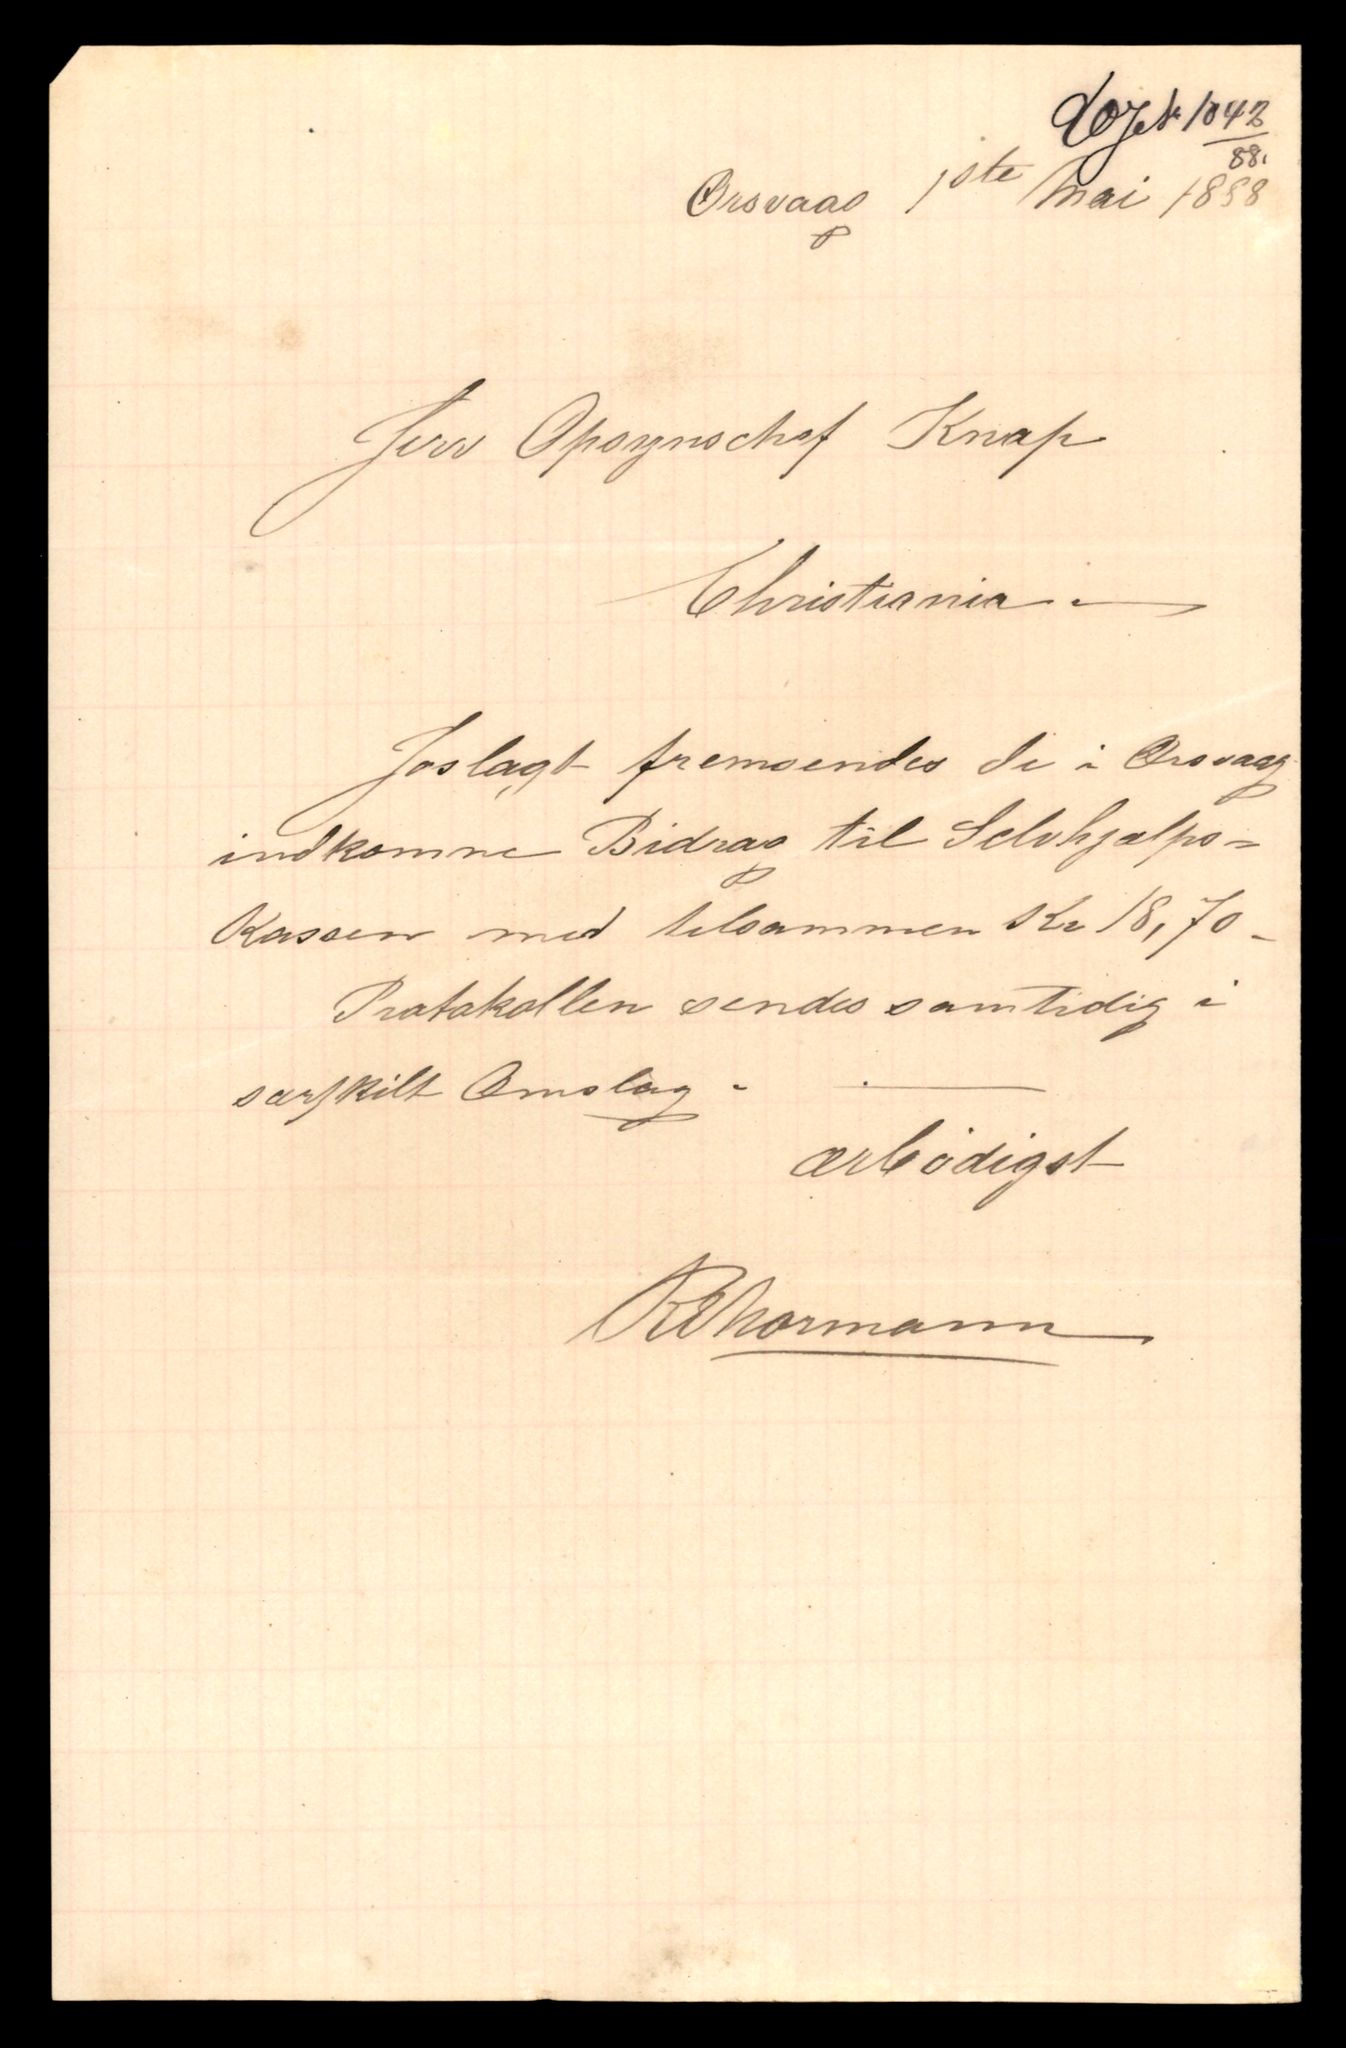 1042
88.
Ørsvaag 1ste Mai 1888
Herr Opsynschef Knap
Christiania.
Joslagt fremsendes de i Ørsvaag
indkomne Bidrag til Selvhjælps-
Kassen med tilsammen Kr 18,70
Protokollen sendes samtidig i
særskilt Omslag.
ærbödigst
Normann